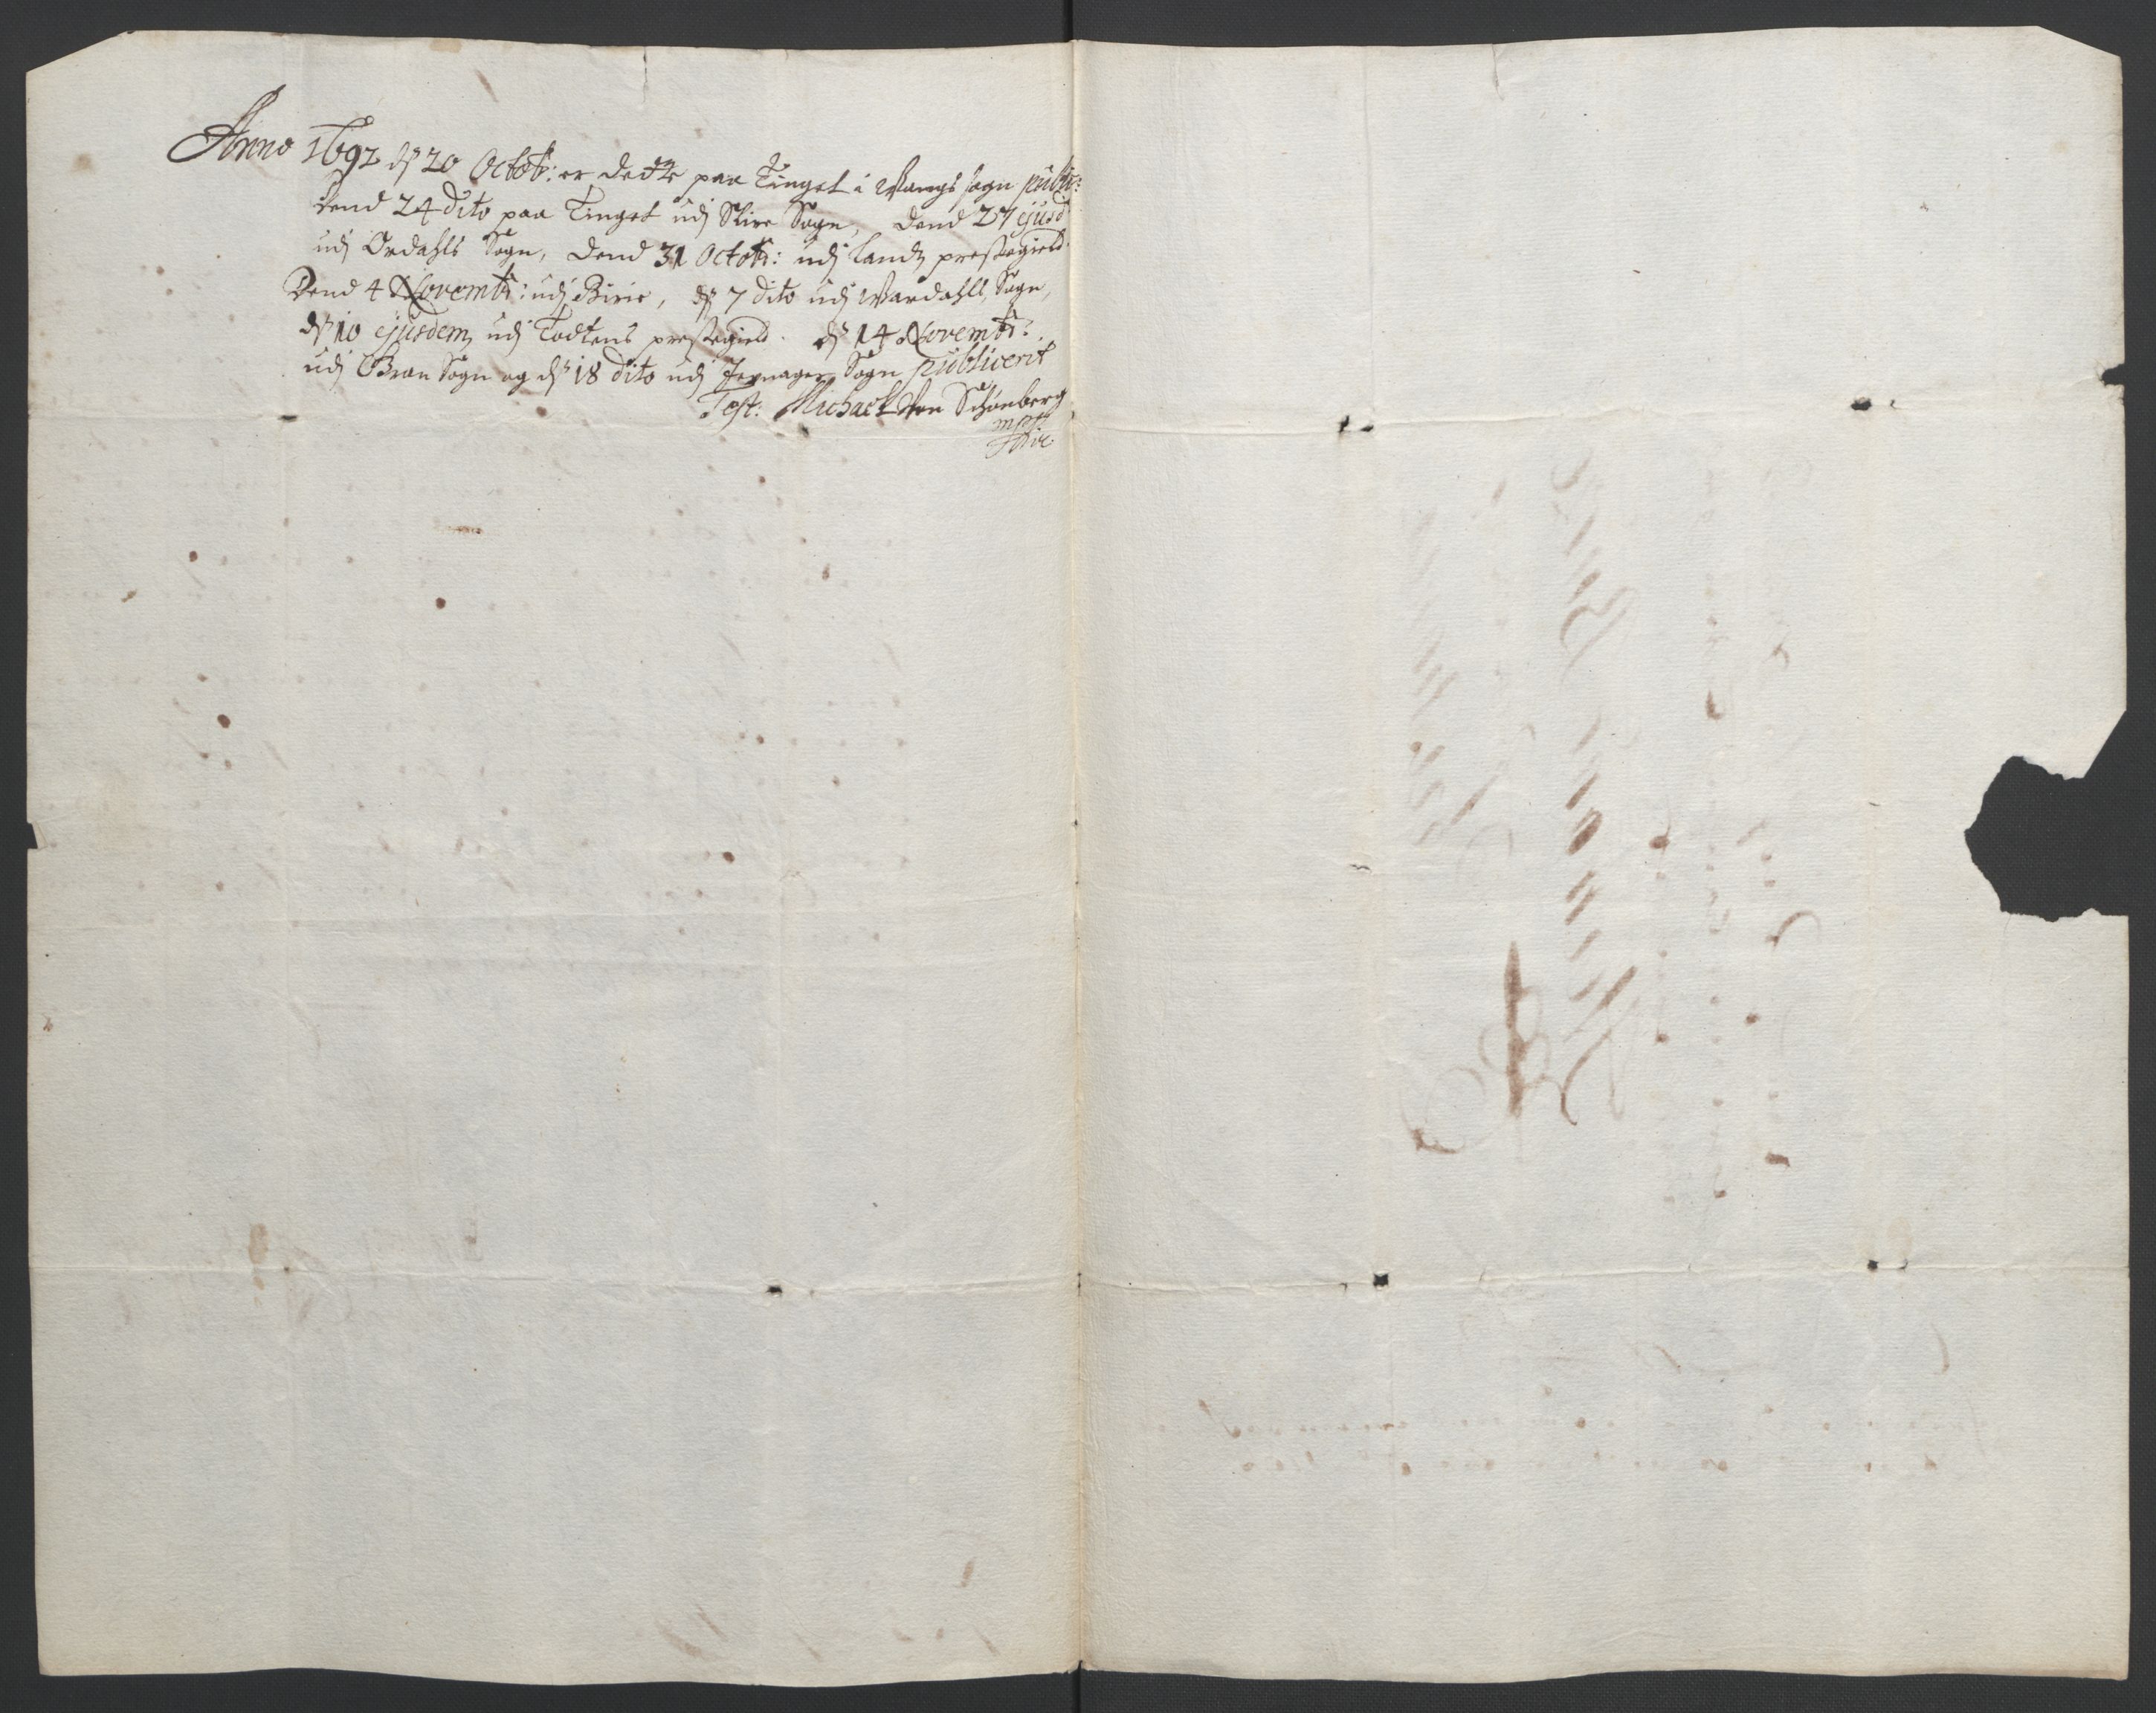 Anno 1692 dn 20 Octob: er dette paa Tinget i Wangs sogn public:
dend 24 dito paa Tinget udj Slire Sogn, dend 27 ejusd
udj Ordahls Sogn, dend 31 Octob: udj Landz prestegield.
Dend 4 Novemb: udj Birie, dn 7 dito udj Wardahls Sogn,
dn 10 ejusdem udj Todtens prestegield. dn 14 Novemb:
udj Gran Sogn og dn 18 dito udj Jevnager Sogn publicerit
Test: Michael Von Schönberg
mpp